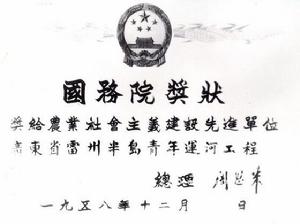 國務院獎狀
獎給農業社會主義建設先進單位
廣東省雷州半島青年運河工程
總理 周恩來
一九五八年十二月 日